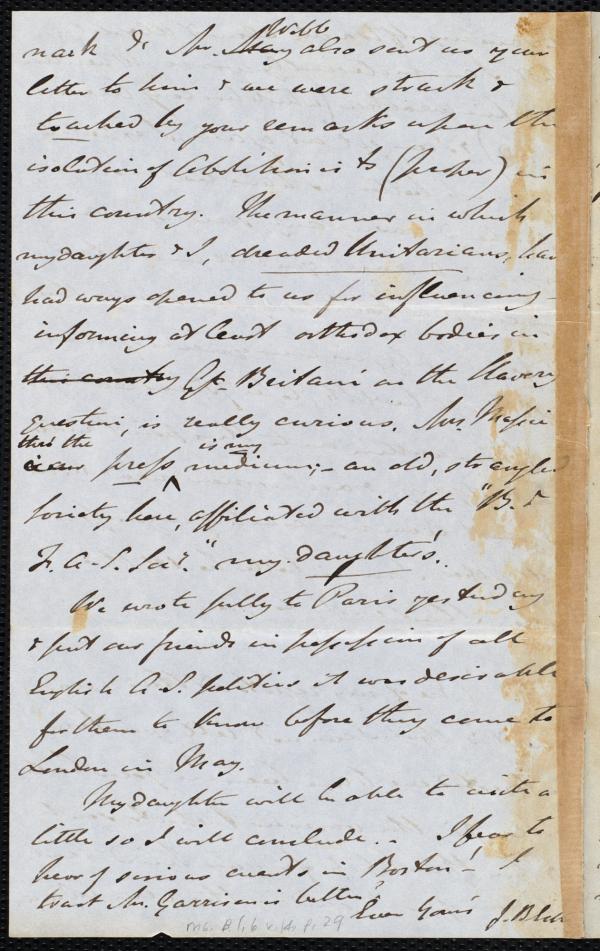 Webb
nark St. Mr. May also sent us your
letter to him & we were struck &
touched by your remarks upon the
isolation of Abolitionists (proper) in
this country. The manner in which
my daughter & I, dreaded Unitarians, have
had ways opened to us for influencing -
informing at least orthodox bodies in
this country Gt. Britain on the Slavery
question, is really curious. Mrs. Massie
thro' the is my
press medium; - an old, strangled
Society here, affiliated with the "B. &
F. A-S. Soc.y" my daughter's.
We wrote fully to Paris yesterday
& put our friends in possession of all
English A. S. politics it was desirable
for them to know before they come to
London in May.
My daughter will be able to write a
little so I will conclude. - I fear to
hear of serious events in Boston! - I
trust Mr. Garrison is better,
Ever Yours J. B.
Ms. B.1.6 v.14, p.29